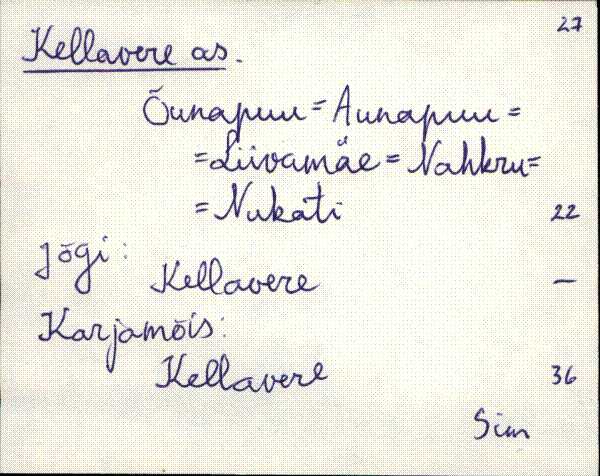 27
Kellavere as.
Õunapuu = Aunapuu =
= Liivamäe = Nahkru =
= Nukati 22
Jõgi:
Kellavere —
Karjamõis:
Kellavere 36
Sim